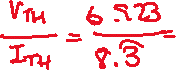 V_TH / I_TH = 6.923 / 8.3 =